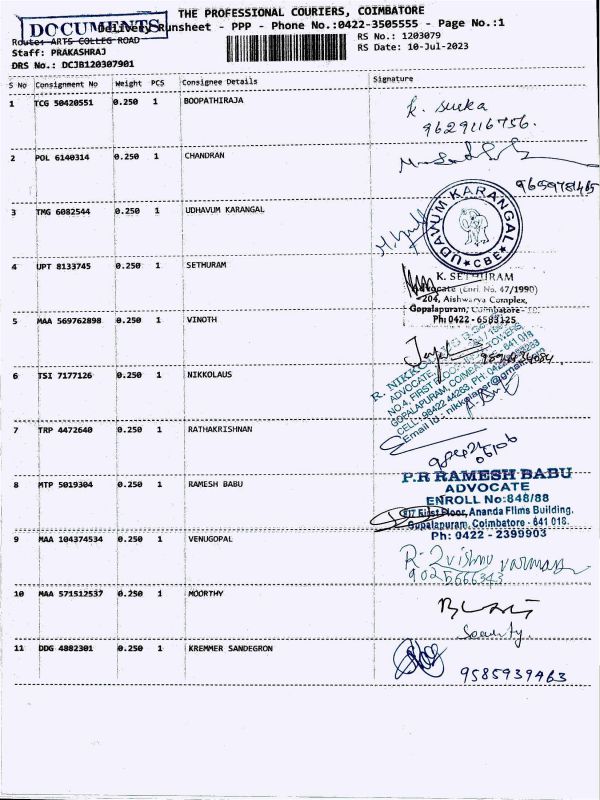 THE PROFESSIONAL COURIERS, COIMBATORE
DOCUMENTS
Delivery Runsheet - PPP - Phone No.:0422-3505555 - Page No.:1
Route: ARTS COLLEG ROAD
RS No.: 1203079
Staff: PRAKASHRAJ
RS Date: 10-Jul-2023
DRS No.: DCJB120307901
S No Consignment No Weight PCS Consignee Details Signature
1 TCG 50420551 0.250 1 BOOPATHIRAJA
K. Suka
9629116756.
2 POL 6140314 0.250 1 CHANDRAN
9659781465
3 TMG 6082544 0.250 1 UDHAVUM KARANGAL
UDAVUM KARANGAL
CBE
4 UPT 8133745 0.250 1 SETHURAM
K. SETHURAM
Advocate (Enrl. No. 47/1990)
204, Aishwarya Complex,
Gopalapuram, Coimbatore -
Ph: 0422 - 6583125
5 MAA 569762898 0.250 1 VINOTH
6 TSI 7177126 0.250 1 NIKKOLAUS
R. NIKKO
ADVOCATE,
NO.4, FIRST FLOOR, TOWERS,
GOPALAPURAM, COIMBATORE - 641 018
CELL: 98422 44268, PH: 0422
Email id:
7 TRP 4472640 0.250 1 RATHAKRISHNAN
8 MTP 5019304 0.250 1 RAMESH BABU
P.R RAMESH BABU
ADVOCATE
ENROLL No:848/88
First Floor, Ananda Flims Building.
Gopalapuram, Coimbatore - 641 018.
Ph: 0422 - 2399903
9 MAA 104374534 0.250 1 VENUGOPAL
R. Vishnu varman
9025666343
10 MAA 571512537 0.250 1 MOORTHY
Security.
11 DDG 4882301 0.250 1 KREMMER SANDEGRON
9585939463